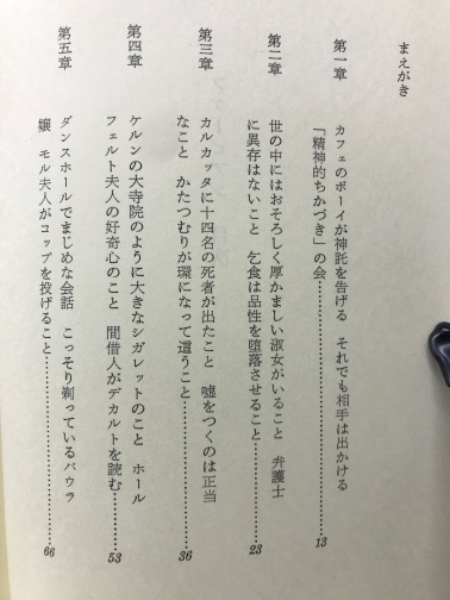 まえがき
第一章 カフェのボーイが神託を告げる それでも相手は出かける
「精神的ちかづき」の会…………………………13
第二章 世の中にはおそろしく厚かましい淑女がいること 弁護士
に異存はないこと 乞食は品性を堕落させること…………23
第三章 カルカッタに十四名の死者が出たこと 嘘をつくのは正当
なこと かたつむりが環になって這うこと……………36
第四章 ケルンの大寺院のように大きなシガレットのこと ホール
フェルト夫人の好奇心のこと 間借人がデカルトを読む…………53
第五章 ダンスホールでまじめな会話 こっそり剃っているパウラ
嬢 モル夫人がコップを投げること…………………66